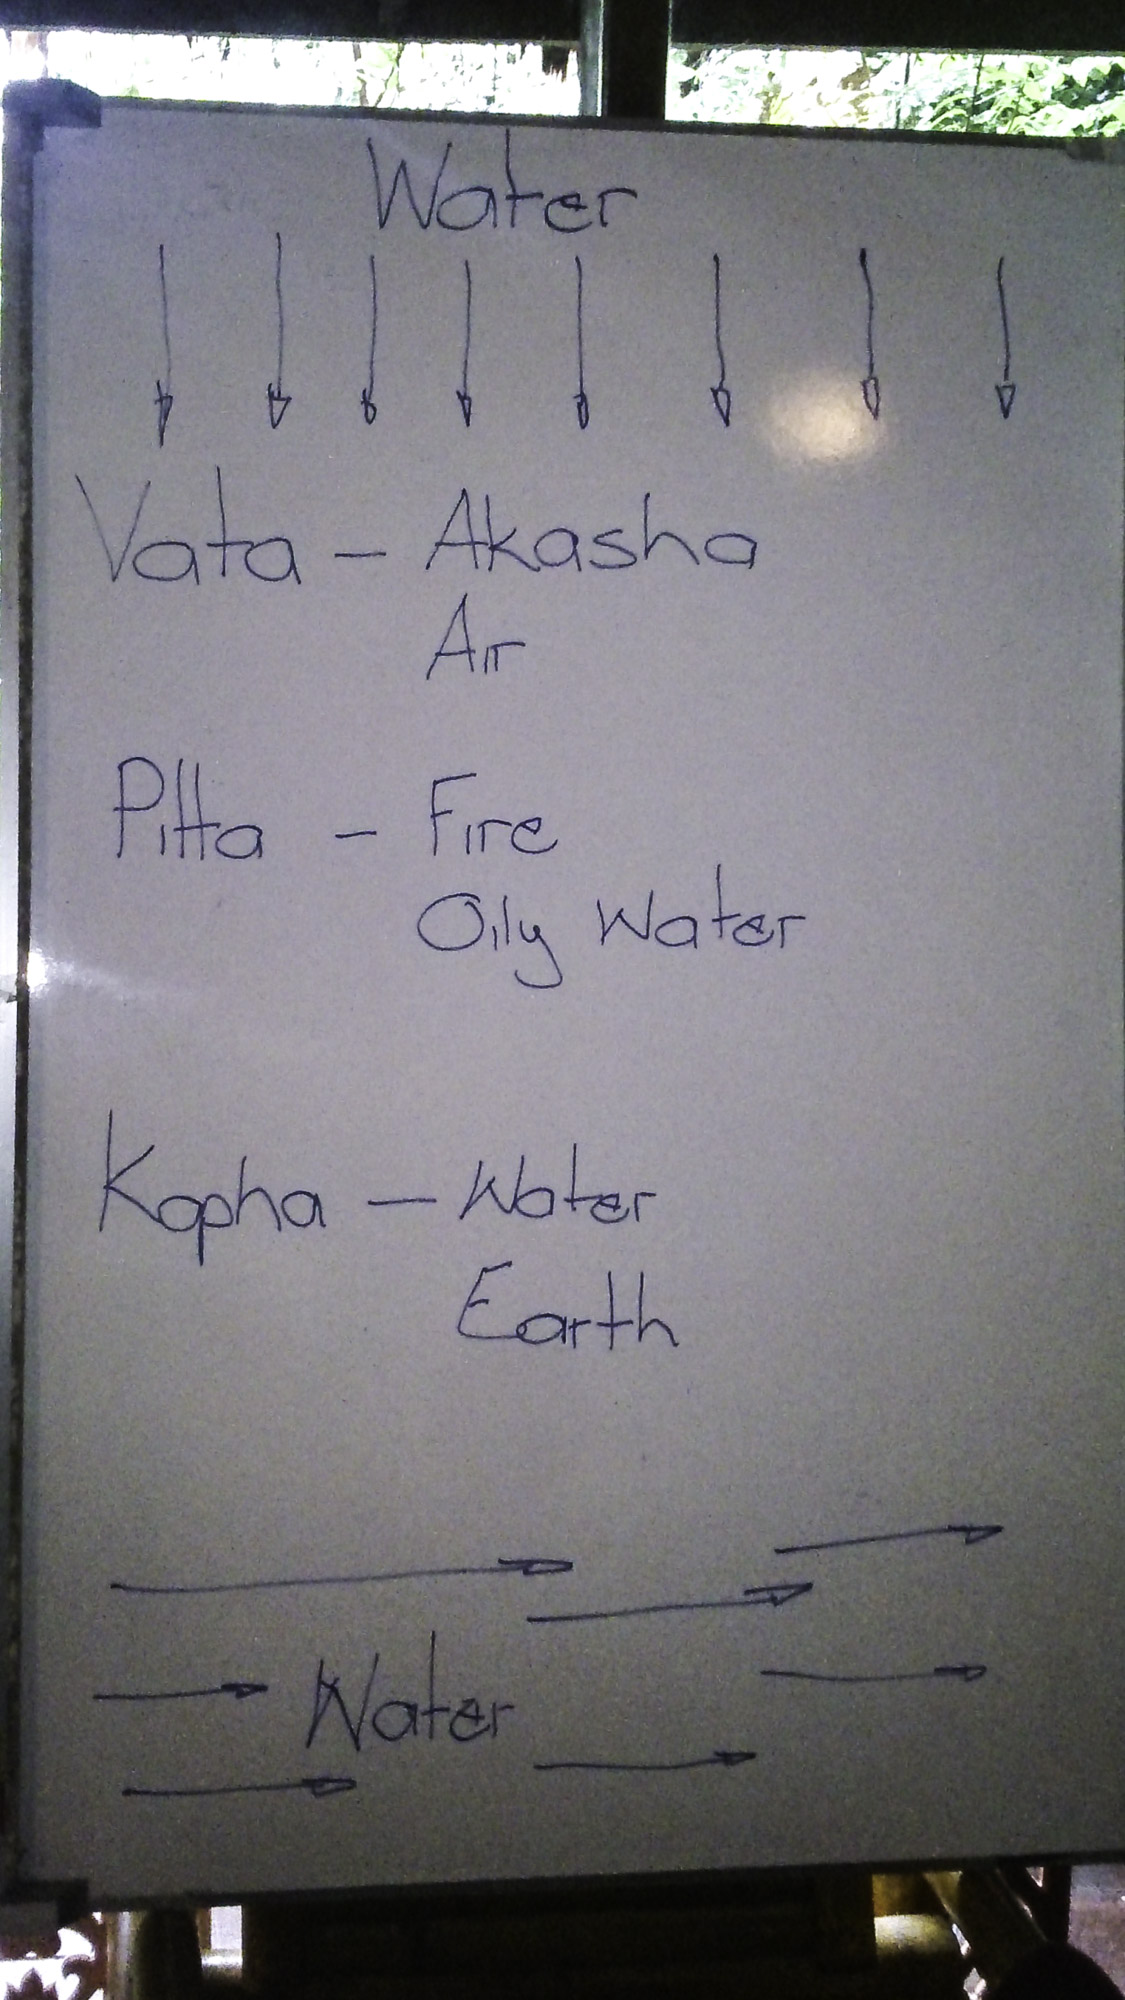 Water
Vata - Akasha
Air
Pitta - Fire
Oily Water
Kapha - Water
Earth
Water